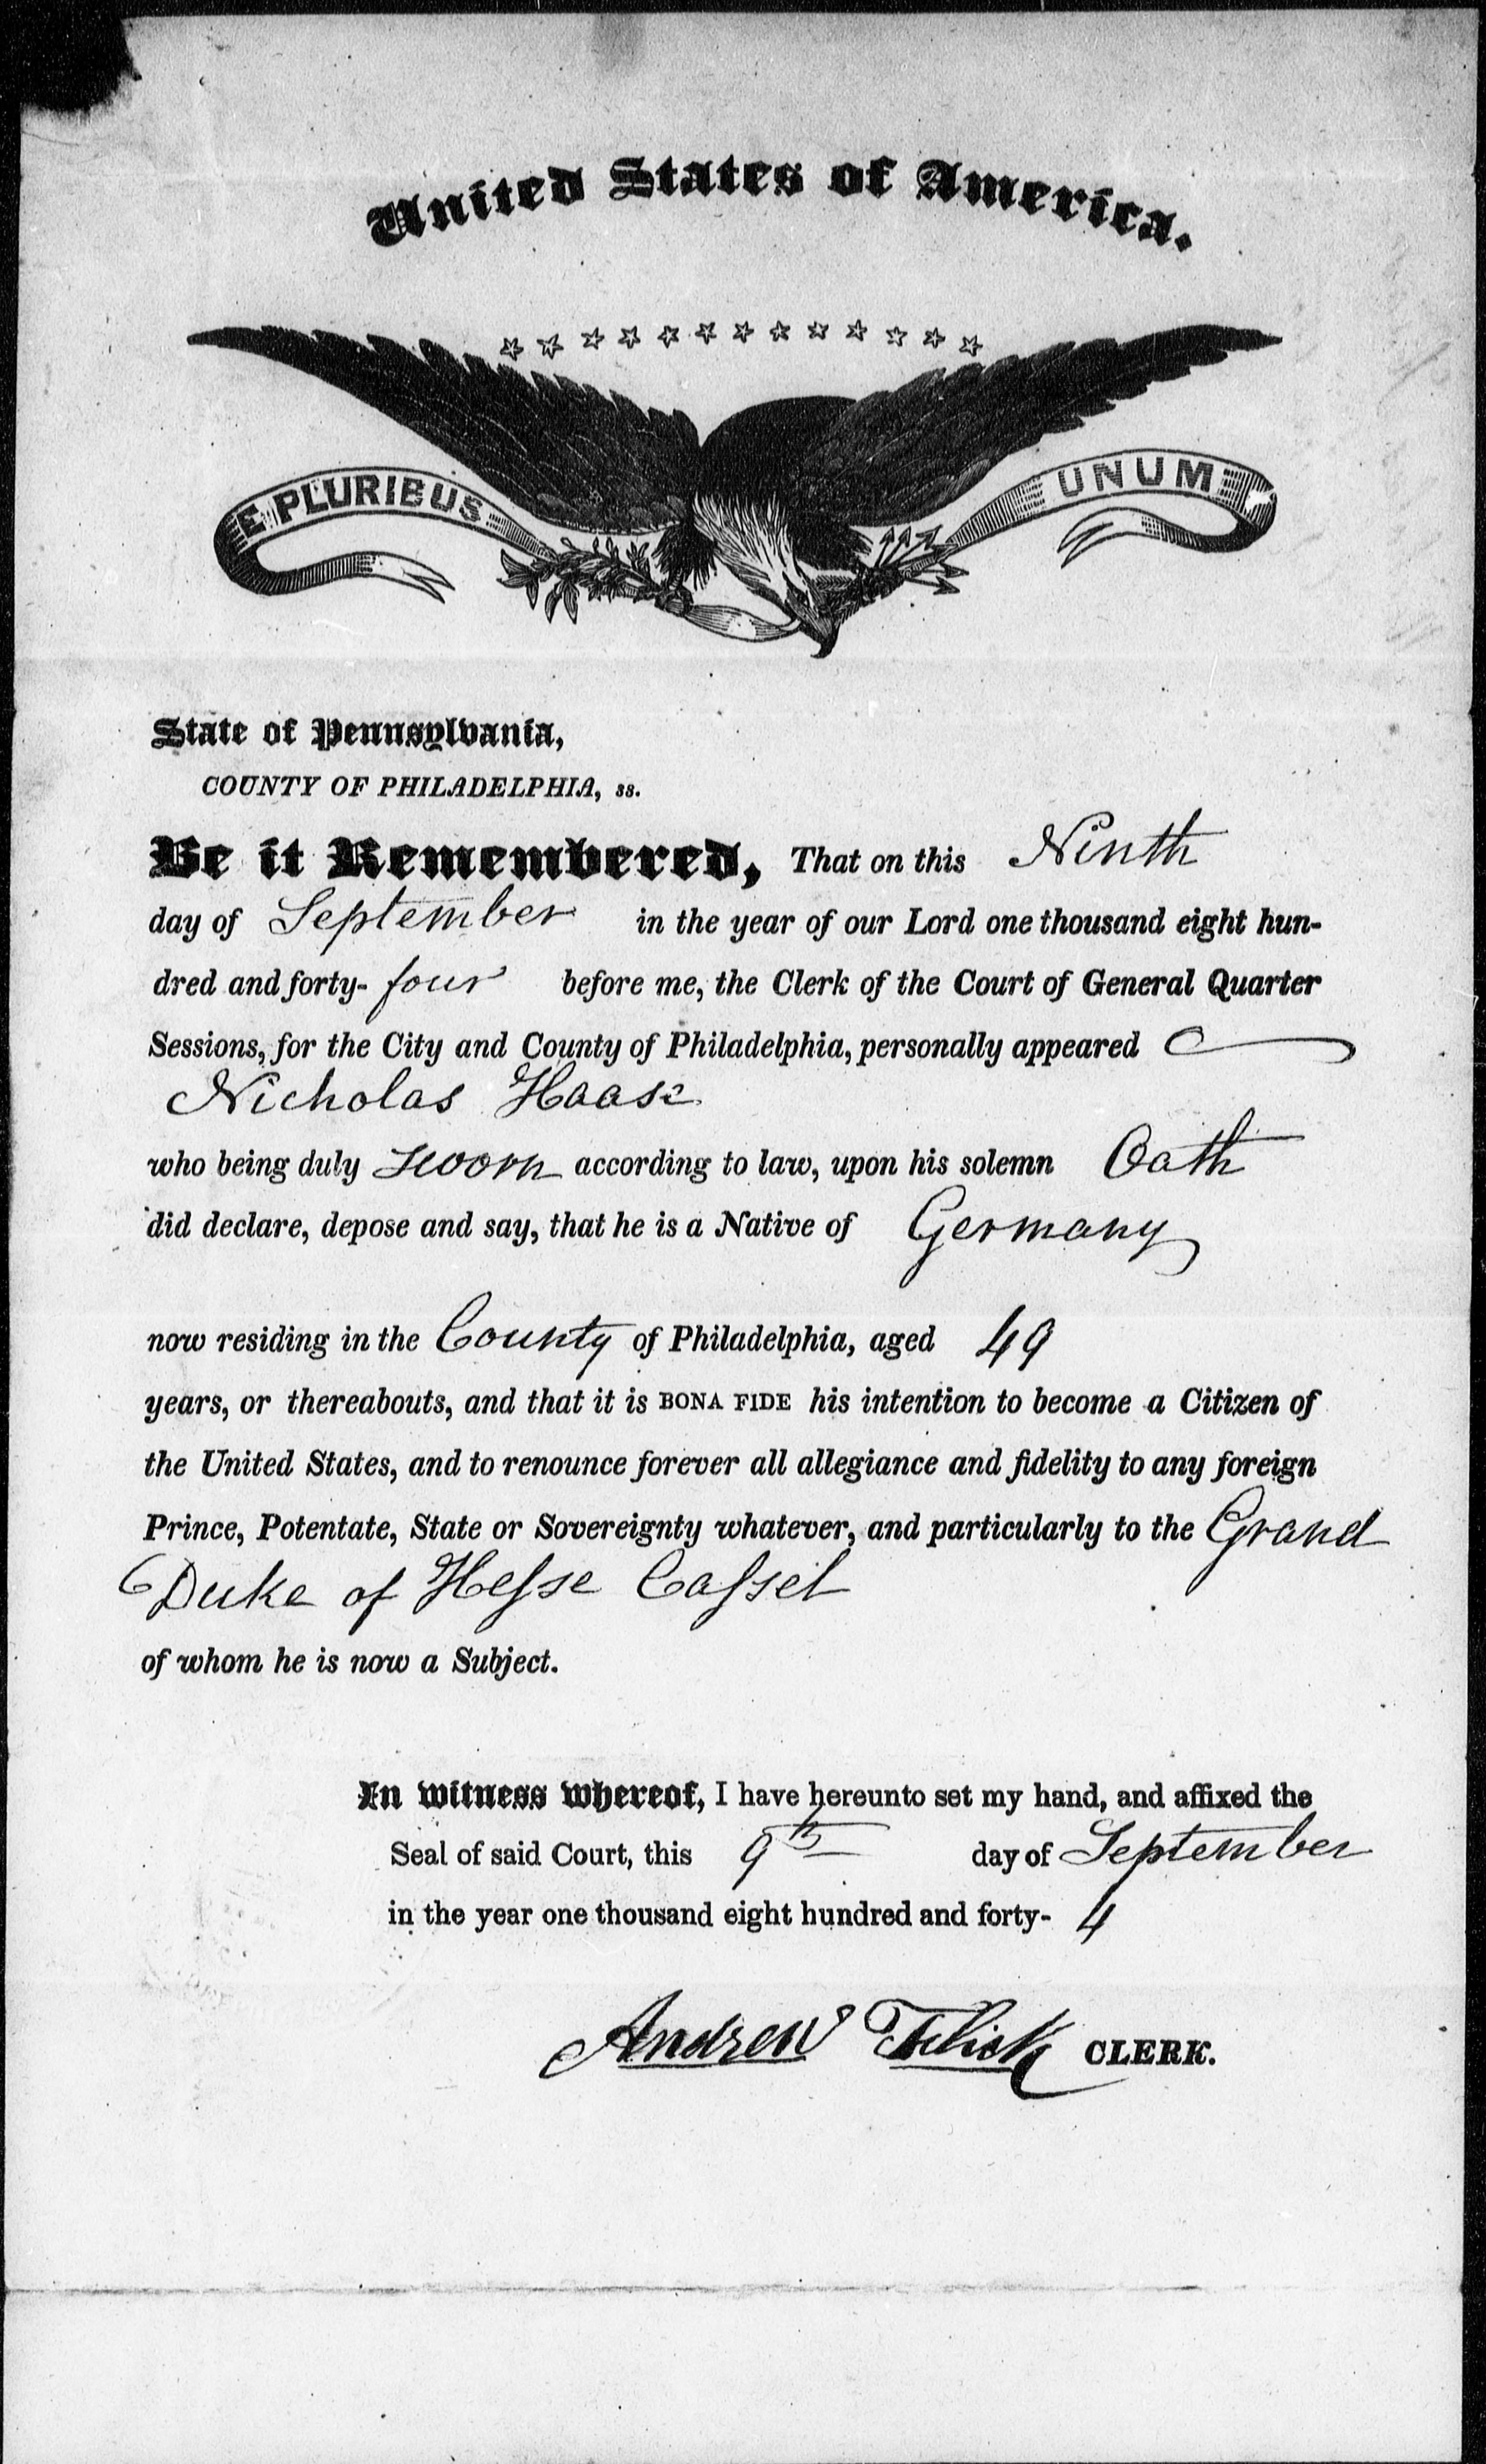 United States of America.
E PLURIBUS UNUM
State of Pennsylvania,
COUNTY OF PHILADELPHIA, ss.
Be it Remembered, That on this Ninth
day of September in the year of our Lord one thousand eight hun-
dred and forty- four before me, the Clerk of the Court of General Quarter
Sessions, for the City and County of Philadelphia, personally appeared
Nicholas Haase
who being duly sworn according to law, upon his solemn Oath
did declare, depose and say, that he is a Native of Germany
now residing in the County of Philadelphia, aged 49
years, or thereabouts, and that it is BONA FIDE his intention to become a Citizen of
the United States, and to renounce forever all allegiance and fidelity to any foreign
Prince, Potentate, State or Sovereignty whatever, and particularly to the Grand
Duke of Hesse Cassel
of whom he is now a Subject.
In witness whereof, I have hereunto set my hand, and affixed the
Seal of said Court, this 9th day of September
in the year one thousand eight hundred and forty- 4
Andrew Flick CLERK.